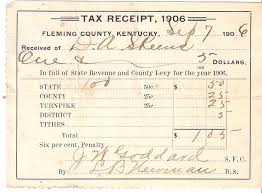 TAX RECEIPT, 1906
FLEMING COUNTY, KENTUCKY, Sep 7 1906
Received of D. A. Skeens
One & 5 DOLLARS,
In full of State Revenue and County Levy for the year 1906.
STATE 100 50c $ 50
COUNTY 25c $ 25
TURNPIKE 25c $ 25
DISTRICT $
TITHES $
TOTAL $ 1 05
J W Goddard S. F. C.
By Newman D. S.